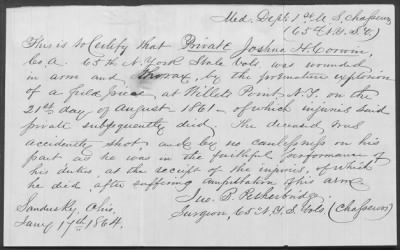 Med. Dept. 1st U. S. Chasseurs
(65 N.Y.S.V.)
This is to Certify that Private Joshua H. Corwin,
Co. A. 65th N. York State Vols. was wounded
in arm and thorax, by the premature explosion
of a field piece at Willets Point N.Y. on the
21st day of August 1861 - of which injuries said
private subsequently died. The deceased was
accidently shot and by no carelessness on his
part as he was in the faithful performance of
his duties, at the receipt of the injuries, of which
he died after suffering amputation of his arm
Jno. B. Petherbridge.
Sandusky, Ohio, Surgeon 65 N.Y.S. Vols (Chasseurs)
Jany 17th 1864.